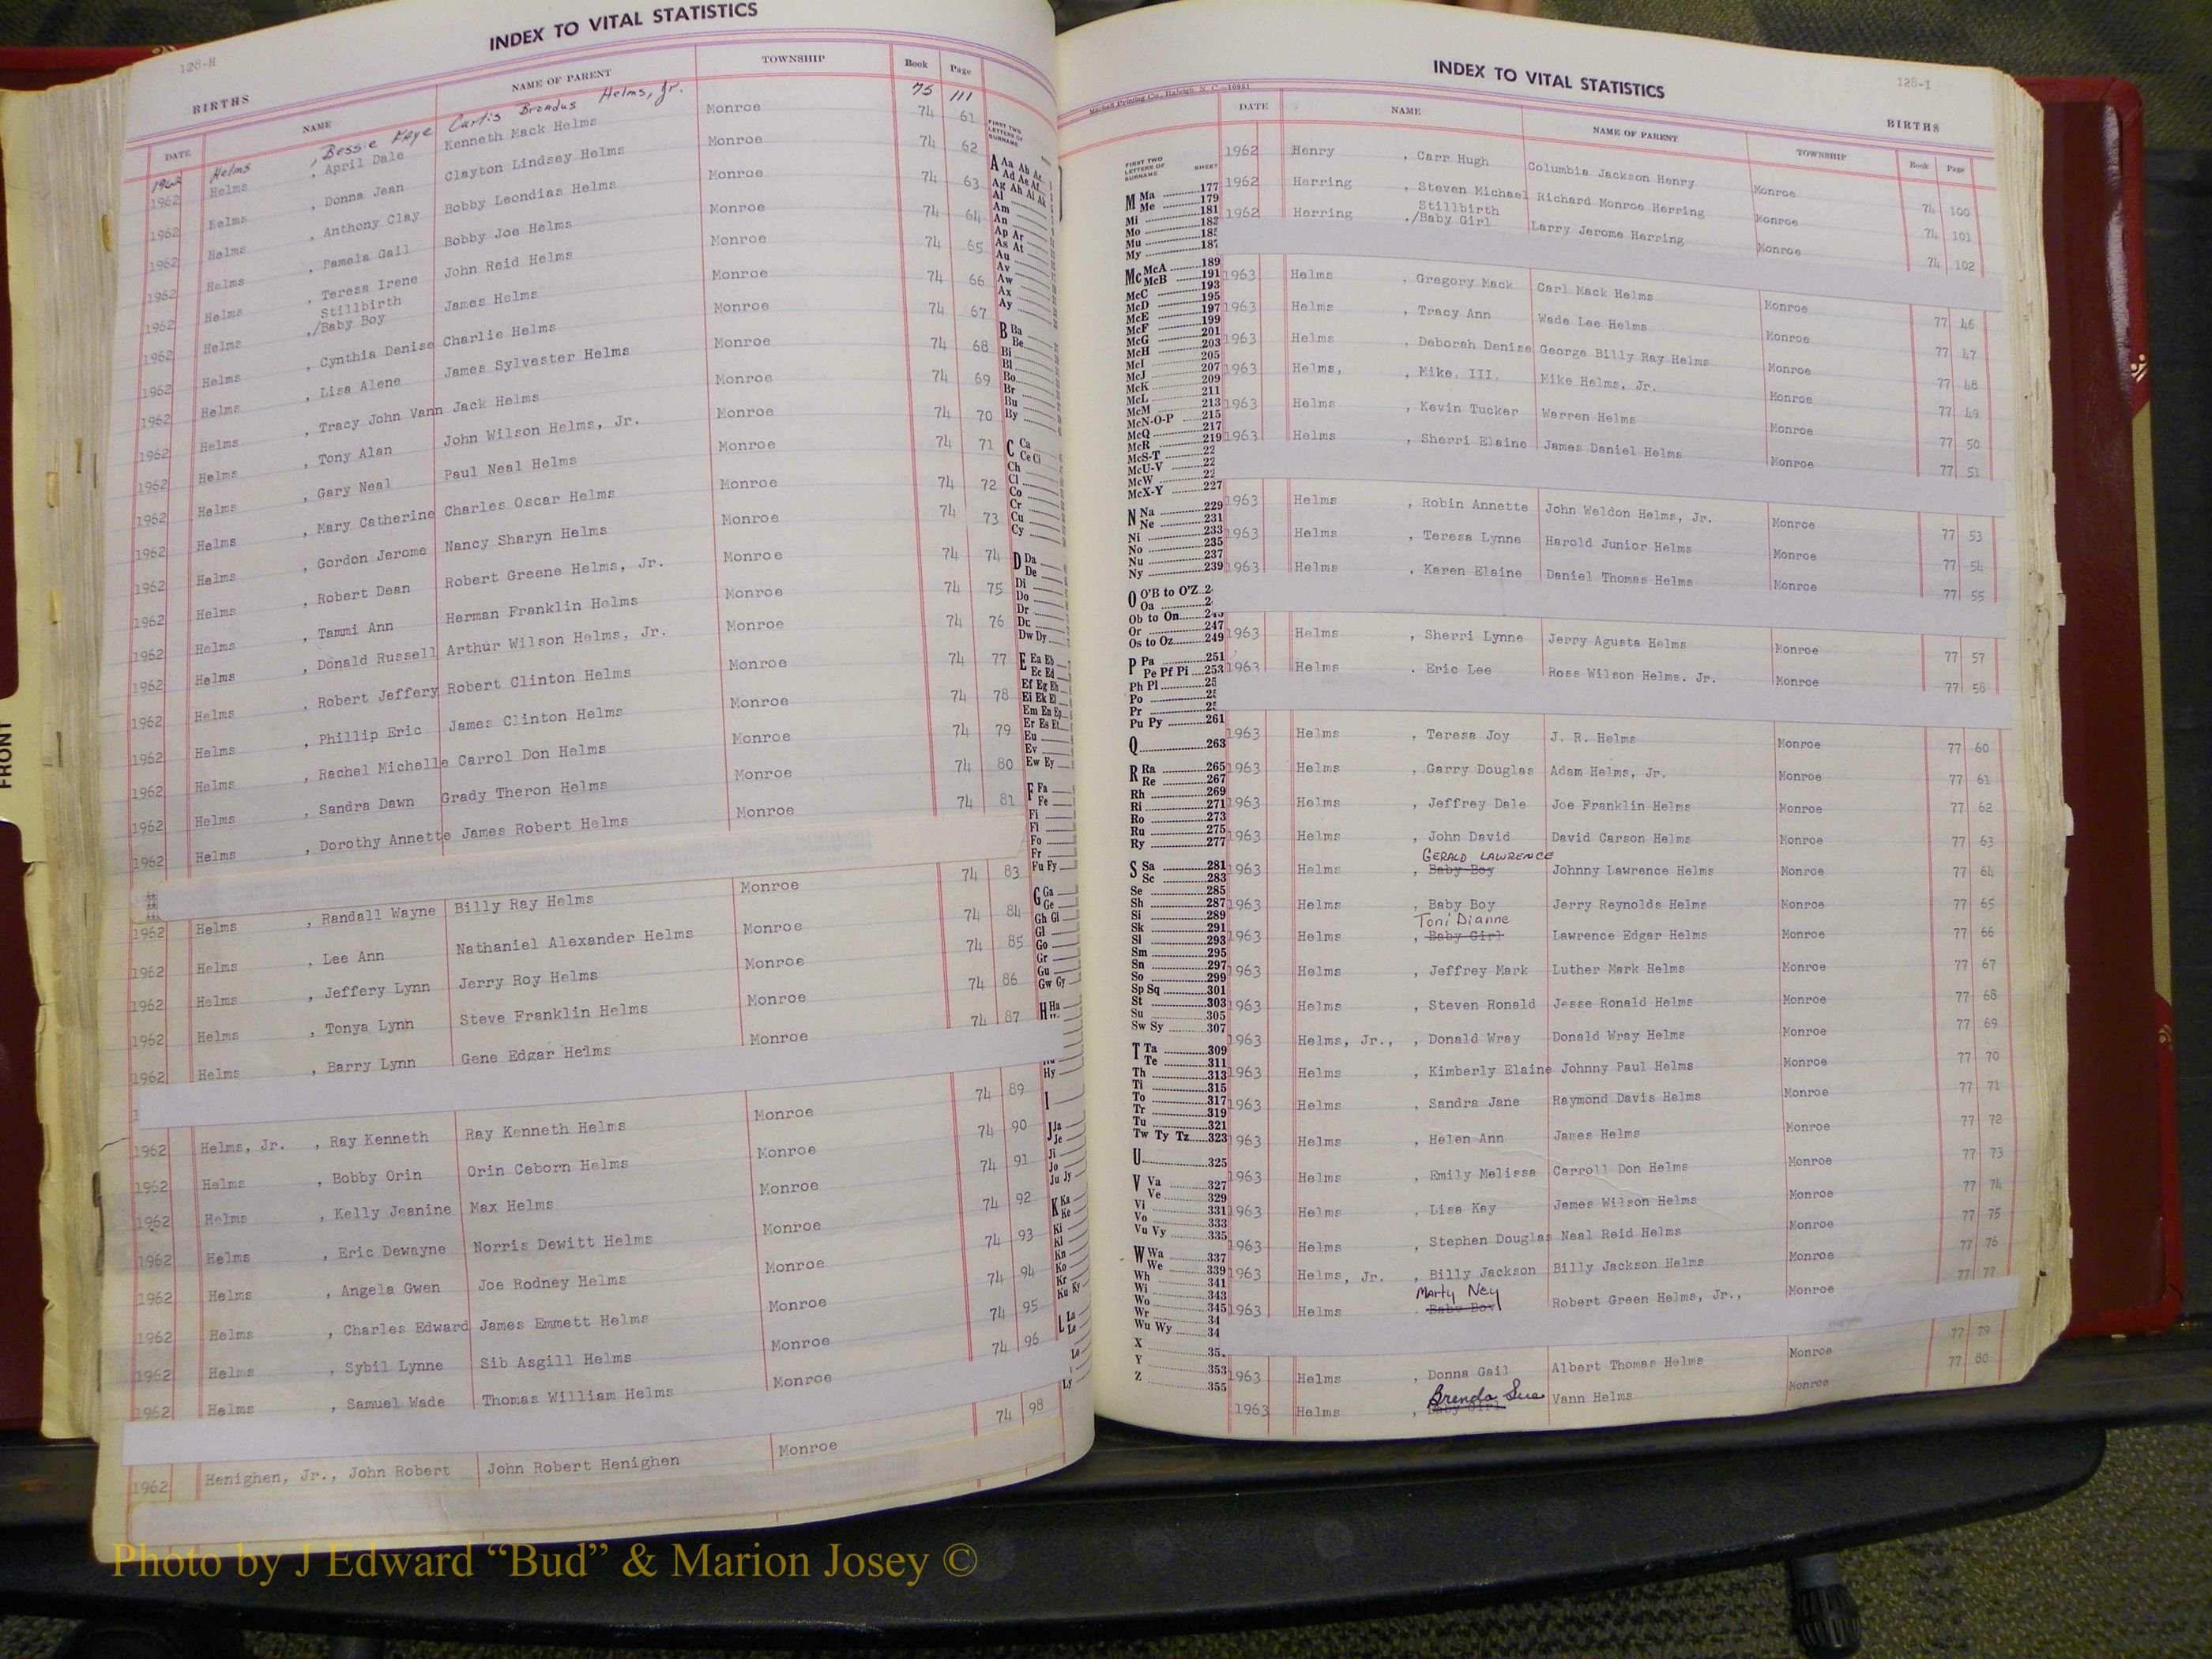 128-H
INDEX TO VITAL STATISTICS
BIRTHS
DATE NAME NAME OF PARENT TOWNSHIP Book Page
1962 Helms , Bessie Faye Curtis Broadus Helms, Jr. 75 111
1962 Helms , April Dale Kenneth Mack Helms Monroe 74 61
1962 Helms , Donna Jean Clayton Lindsey Helms Monroe 74 62
1962 Helms , Anthony Clay Bobby Leondias Helms Monroe 74 63
1962 Helms , Pamela Gail Bobby Joe Helms Monroe 74 64
1962 Helms , Teresa Irene John Reid Helms Monroe 74 65
Stillbirth
1962 Helms ,/Baby Boy James Helms Monroe 74 66
1962 Helms , Cynthia Denise Charlie Helms Monroe 74 67
1962 Helms , Lisa Alene James Sylvester Helms Monroe 74 68
1962 Helms , Tracy John Vann Jack Helms Monroe 74 69
1962 Helms , Tony Alan John Wilson Helms, Jr. Monroe 74 70
1962 Helms , Gary Neal Paul Neal Helms Monroe 74 71
1962 Helms , Mary Catherine Charles Oscar Helms Monroe 74 72
1962 Helms , Gordon Jerome Nancy Sharyn Helms Monroe 74 73
1962 Helms , Robert Dean Robert Greene Helms, Jr. Monroe 74 74
1962 Helms , Tammi Ann Herman Franklin Helms Monroe 74 75
1962 Helms , Donald Russell Arthur Wilson Helms, Jr. Monroe 74 76
1962 Helms , Robert Jeffery Robert Clinton Helms Monroe 74 77
1962 Helms , Phillip Eric James Clinton Helms Monroe 74 78
1962 Helms , Rachel Michelle Carrol Don Helms Monroe 74 79
1962 Helms , Sandra Dawn Grady Theron Helms Monroe 74 80
1962 Helms , Dorothy Annette James Robert Helms Monroe 74 81
1962 Helms , Randall Wayne Billy Ray Helms Monroe 74 83
1962 Helms , Lee Ann Nathaniel Alexander Helms Monroe 74 84
1962 Helms , Jeffery Lynn Jerry Roy Helms Monroe 74 85
1962 Helms , Tonya Lynn Steve Franklin Helms Monroe 74 86
1962 Helms , Barry Lynn Gene Edgar Helms Monroe 74 87
1962 Helms, Jr. , Ray Kenneth Ray Kenneth Helms Monroe 74 89
1962 Helms , Bobby Orin Orin Ceborn Helms Monroe 74 90
1962 Helms , Kelly Jeanine Max Helms Monroe 74 91
1962 Helms , Eric Dewayne Norris Dewitt Helms Monroe 74 92
1962 Helms , Angela Gwen Joe Rodney Helms Monroe 74 93
1962 Helms , Charles Edward James Emmett Helms Monroe 74 94
1962 Helms , Sybil Lynne Sib Asgill Helms Monroe 74 95
1962 Helms , Samuel Wade Thomas William Helms Monroe 74 96
1962 Henighen, Jr., John Robert John Robert Henighen Monroe 74 98
FIRST TWO LETTERS OF SURNAME
A Aa Ab Ac
Ad Ae Af
Ag Ah Ai Ak
Al
Am
An
Ap Ar
As At
Au
Av
Aw
Ax
Ay
B Ba
Be
Bi
Bl
Bo
Br
Bu
By
C Ca
Ce Ci
Ch
Cl
Co
Cr
Cu
Cy
D Da
De
Di
Do
Dr
Du
Dw Dy
E Ea Eb
Ec Ed
Ef Eg Eh
Ei Ek El
Em En Ep
Er Es Et
Eu
Ev
Ew Ey
F Fa
Fe
Fi
Fl
Fo
Fr
Fu Fy
G Ga
Ge
Gh Gi
Gl
Go
Gr
Gu
Gw Gy
H Ha
Hy
I
J Ja
Je
Ji
Jo
Ju Jy
K Ka
Ke
Ki
Kl
Kn
Ko
Kr
Ku Ky
L La
Le
Lo
Ly
128-I
INDEX TO VITAL STATISTICS
Mitchell Printing Co., Raleigh, N. C.—10951
BIRTHS
DATE NAME NAME OF PARENT TOWNSHIP Book Page
1962 Henry , Carr Hugh Columbia Jackson Henry Monroe 74 100
1962 Herring , Steven Michael Richard Monroe Herring Monroe 74 101
Stillbirth
1962 Herring ,/Baby Girl Larry Jerome Herring Monroe 74 102
1963 Helms , Gregory Mack Carl Mack Helms Monroe 77 46
1963 Helms , Tracy Ann Wade Lee Helms Monroe 77 47
1963 Helms , Deborah Denise George Billy Ray Helms Monroe 77 48
1963 Helms, , Mike, III. Mike Helms, Jr. Monroe 77 49
1963 Helms , Kevin Tucker Warren Helms Monroe 77 50
1963 Helms , Sherri Elaine James Daniel Helms Monroe 77 51
1963 Helms , Robin Annette John Weldon Helms, Jr. Monroe 77 53
1963 Helms , Teresa Lynne Harold Junior Helms Monroe 77 54
1963 Helms , Karen Elaine Daniel Thomas Helms Monroe 77 55
1963 Helms , Sherri Lynne Jerry Agusta Helms Monroe 77 57
1963 Helms , Eric Lee Ross Wilson Helms, Jr. Monroe 77 58
1963 Helms , Teresa Joy J. R. Helms Monroe 77 60
1963 Helms , Garry Douglas Adam Helms, Jr. Monroe 77 61
1963 Helms , Jeffrey Dale Joe Franklin Helms Monroe 77 62
1963 Helms , John David David Carson Helms Monroe 77 63
GERALD LAWRENCE
1963 Helms , Baby Boy Johnny Lawrence Helms Monroe 77 64
1963 Helms , Baby Boy Jerry Reynolds Helms Monroe 77 65
Toni Dianne
1963 Helms , Baby Girl Lawrence Edgar Helms Monroe 77 66
1963 Helms , Jeffrey Mark Luther Mark Helms Monroe 77 67
1963 Helms , Steven Ronald Jesse Ronald Helms Monroe 77 68
1963 Helms, Jr., , Donald Wray Donald Wray Helms Monroe 77 69
1963 Helms , Kimberly Elaine Johnny Paul Helms Monroe 77 70
1963 Helms , Sandra Jane Raymond Davis Helms Monroe 77 71
1963 Helms , Helen Ann James Helms Monroe 77 72
1963 Helms , Emily Melissa Carroll Don Helms Monroe 77 73
1963 Helms , Lisa Kay James Wilson Helms Monroe 77 74
1963 Helms , Stephen Douglas Neal Reid Helms Monroe 77 75
1963 Helms, Jr. , Billy Jackson Billy Jackson Helms Monroe 77 76
Marty Ney
1963 Helms , Baby Boy Robert Green Helms, Jr., Monroe 77 77
1963 Helms , Donna Gail Albert Thomas Helms Monroe 77 79
Brenda Sue
1963 Helms , Baby Girl Vann Helms Monroe 77 80
FIRST TWO LETTERS OF SURNAME SHEET
M Ma 177
Me 179
Mi 181
Mo 183
Mu 185
My 187
Mc McA 189
McB 191
McC 193
McD 195
McE 197
McF 199
McG 201
McH 203
McI 205
McJ 207
McK 209
McL 211
McM 213
McN-O-P 215
McQ 217
McR 219
McS-T 22
McU-V 22
McW 22
McX-Y 227
N Na 229
Ne 231
Ni 233
No 235
Nu 237
Ny 239
O O'B to O'Z 2
Oa 2
Ob to On 245
Or 247
Os to Oz 249
P Pa 251
Pe Pf Pi 253
Ph Pl 25
Po 25
Pr 25
Pu Py 261
Q 263
R Ra 265
Re 267
Rh 269
Ri 271
Ro 273
Ru 275
Ry 277
S Sa 281
Sc 283
Se 285
Sh 287
Si 289
Sk 291
Sl 293
Sm 295
Sn 297
So 299
Sp Sq 301
St 303
Su 305
Sw Sy 307
T Ta 309
Te 311
Th 313
Ti 315
To 317
Tr 319
Tu 321
Tw Ty Tz 323
U 325
V Va 327
Ve 329
Vi 331
Vo 333
Vu Vy 335
W Wa 337
We 339
Wh 341
Wi 343
Wo 345
Wr 34
Wu Wy 34
X 35
Y 353
Z 355
FRONT
Photo by J Edward “Bud” & Marion Josey ©